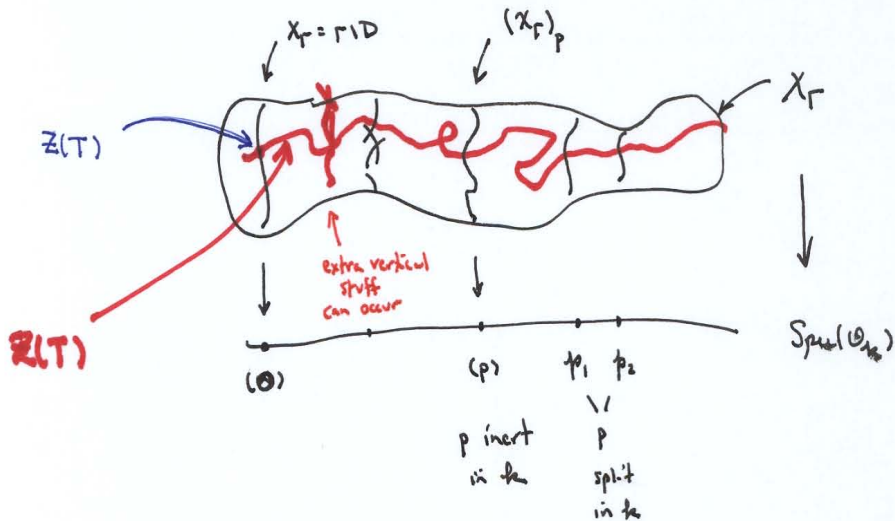 X_Γ = Γ\D
(X_Γ)_p
X_Γ
Z(T)
extra vertical
stuff
can occur
Z(T)
Spec(O_k)
(0)
(p)
p_1
p_2
p inert
in k
p
split
in k